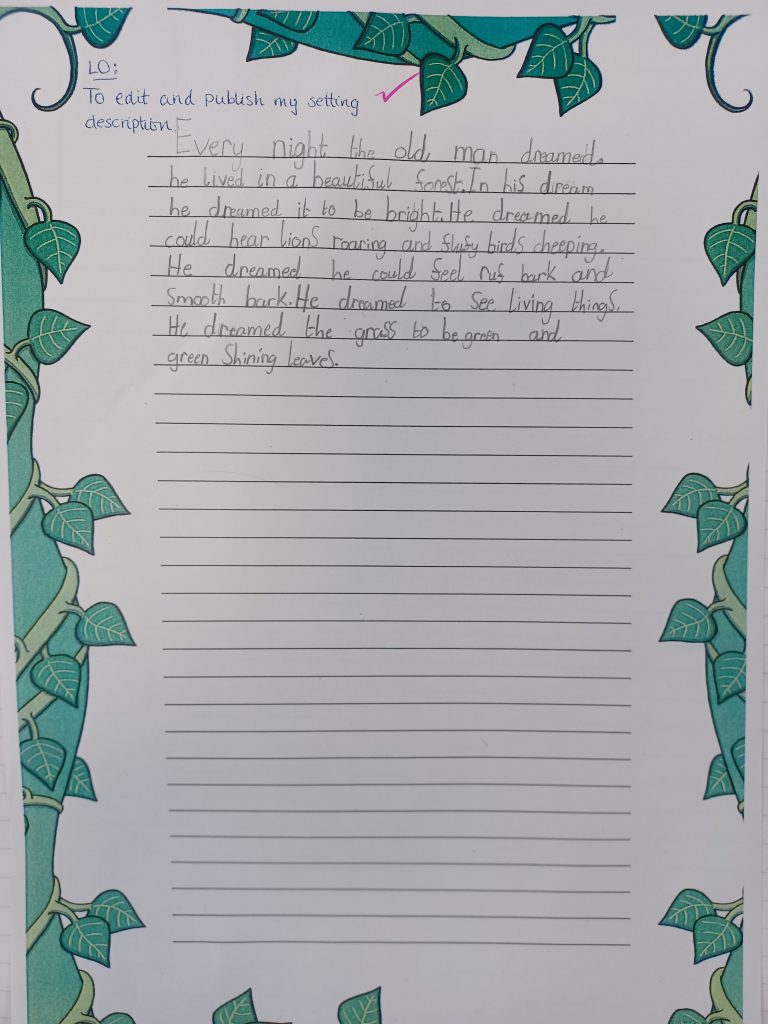 LO:
To edit and publish my setting
description.
Every night the old man dreamed.
he lived in a beautiful forest.In his dream
he dreamed it to be bright.He dreamed he
could hear lions roaring and flufy birds cheeping.
He dreamed he could feel ruf bark and
Smooth bark.He dreamed to see living things.
He dreamed the grass to be green and
green Shining leaves.